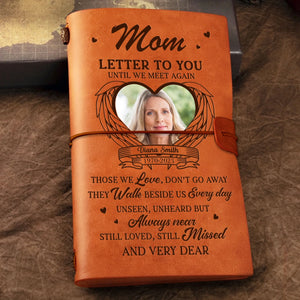 Mom
LETTER TO YOU
UNTIL WE MEET AGAIN
Diana Smith
1970-2023
THOSE WE Love, DON'T GO AWAY
THEY Walk BESIDE US Every day
UNSEEN, UNHEARD BUT
Always near
STILL LOVED, STILL Missed
AND VERY DEAR